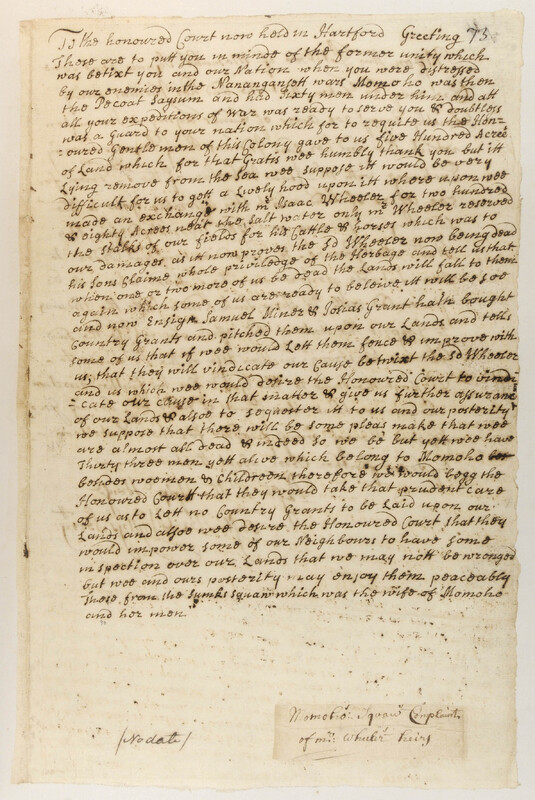 To the honoured Court now held in Hartford Greeting 75
These are to putt you in minde of the former unity which
was betixt you and our Nation when you were distressed
by our enemies in the Nanangansett wars Momoho was then
the Pecoat Sayjum and had sixty men under him and att
all your expeditions of War was ready to serve you & doubtless
was a Guard to your nation which for to requite us the Hon-
oured Gentlemen of this Colony gave to us five Hundred Acres
of Land which for that Gratis wee humbly thank you but itt
Lying remove from the sea wee suppose itt would be very
difficult for us to gett a Lively hood upon itt where upon wee
made an exchange with mr Isaac Wheeler for two hundred
& eighty Acrees near the salt water only mr Wheeler reserved
the stalks of our fields for his Cattle & horses which was to
our damages as itt now proves the sd Wheeler now being dead
his sons Claime whole priviledge of the Herbage and tell us that
when one or two more of us be dead the Lands will fall to them
again which some of us are ready to beleive itt will be soe
and now Ensign Samuel Miner & Josias Grant hath bought
Country Grants and pitched them upon our Lands and tells
some of us that if wee would Lett them fence & improve with
us, that they will vindicate our Cause betwixt the sd Wheeler
and us which wee would desire the Honoured Court to vindi-
cate our cause in that matter & give us further assurance
of our Lands & alsoe to sequester itt to us and our posterity
we suppose that there will be some pleas make that wee
are almost all dead & indeed so we be but yett wee have
Thirty three men yett alive which belong to Momoho
besides woemen & Childreen therefore we would begg the
Honoured Courtt that they would take that prudent care
of us as to Lett no Country Grants to be Laid upon our
Lands and alsoe wee desire the Honoured Court that they
would impower some of our Neighbours to have some
inspection over our Lands that we may nott be wronged
but wee and ours posterity may enjoy them peaceably
These from the Sunks Squaw which was the wife of Momoho
and her men
Momoho's Squaw Complaint
of mr Wheeler heirs
/No date/